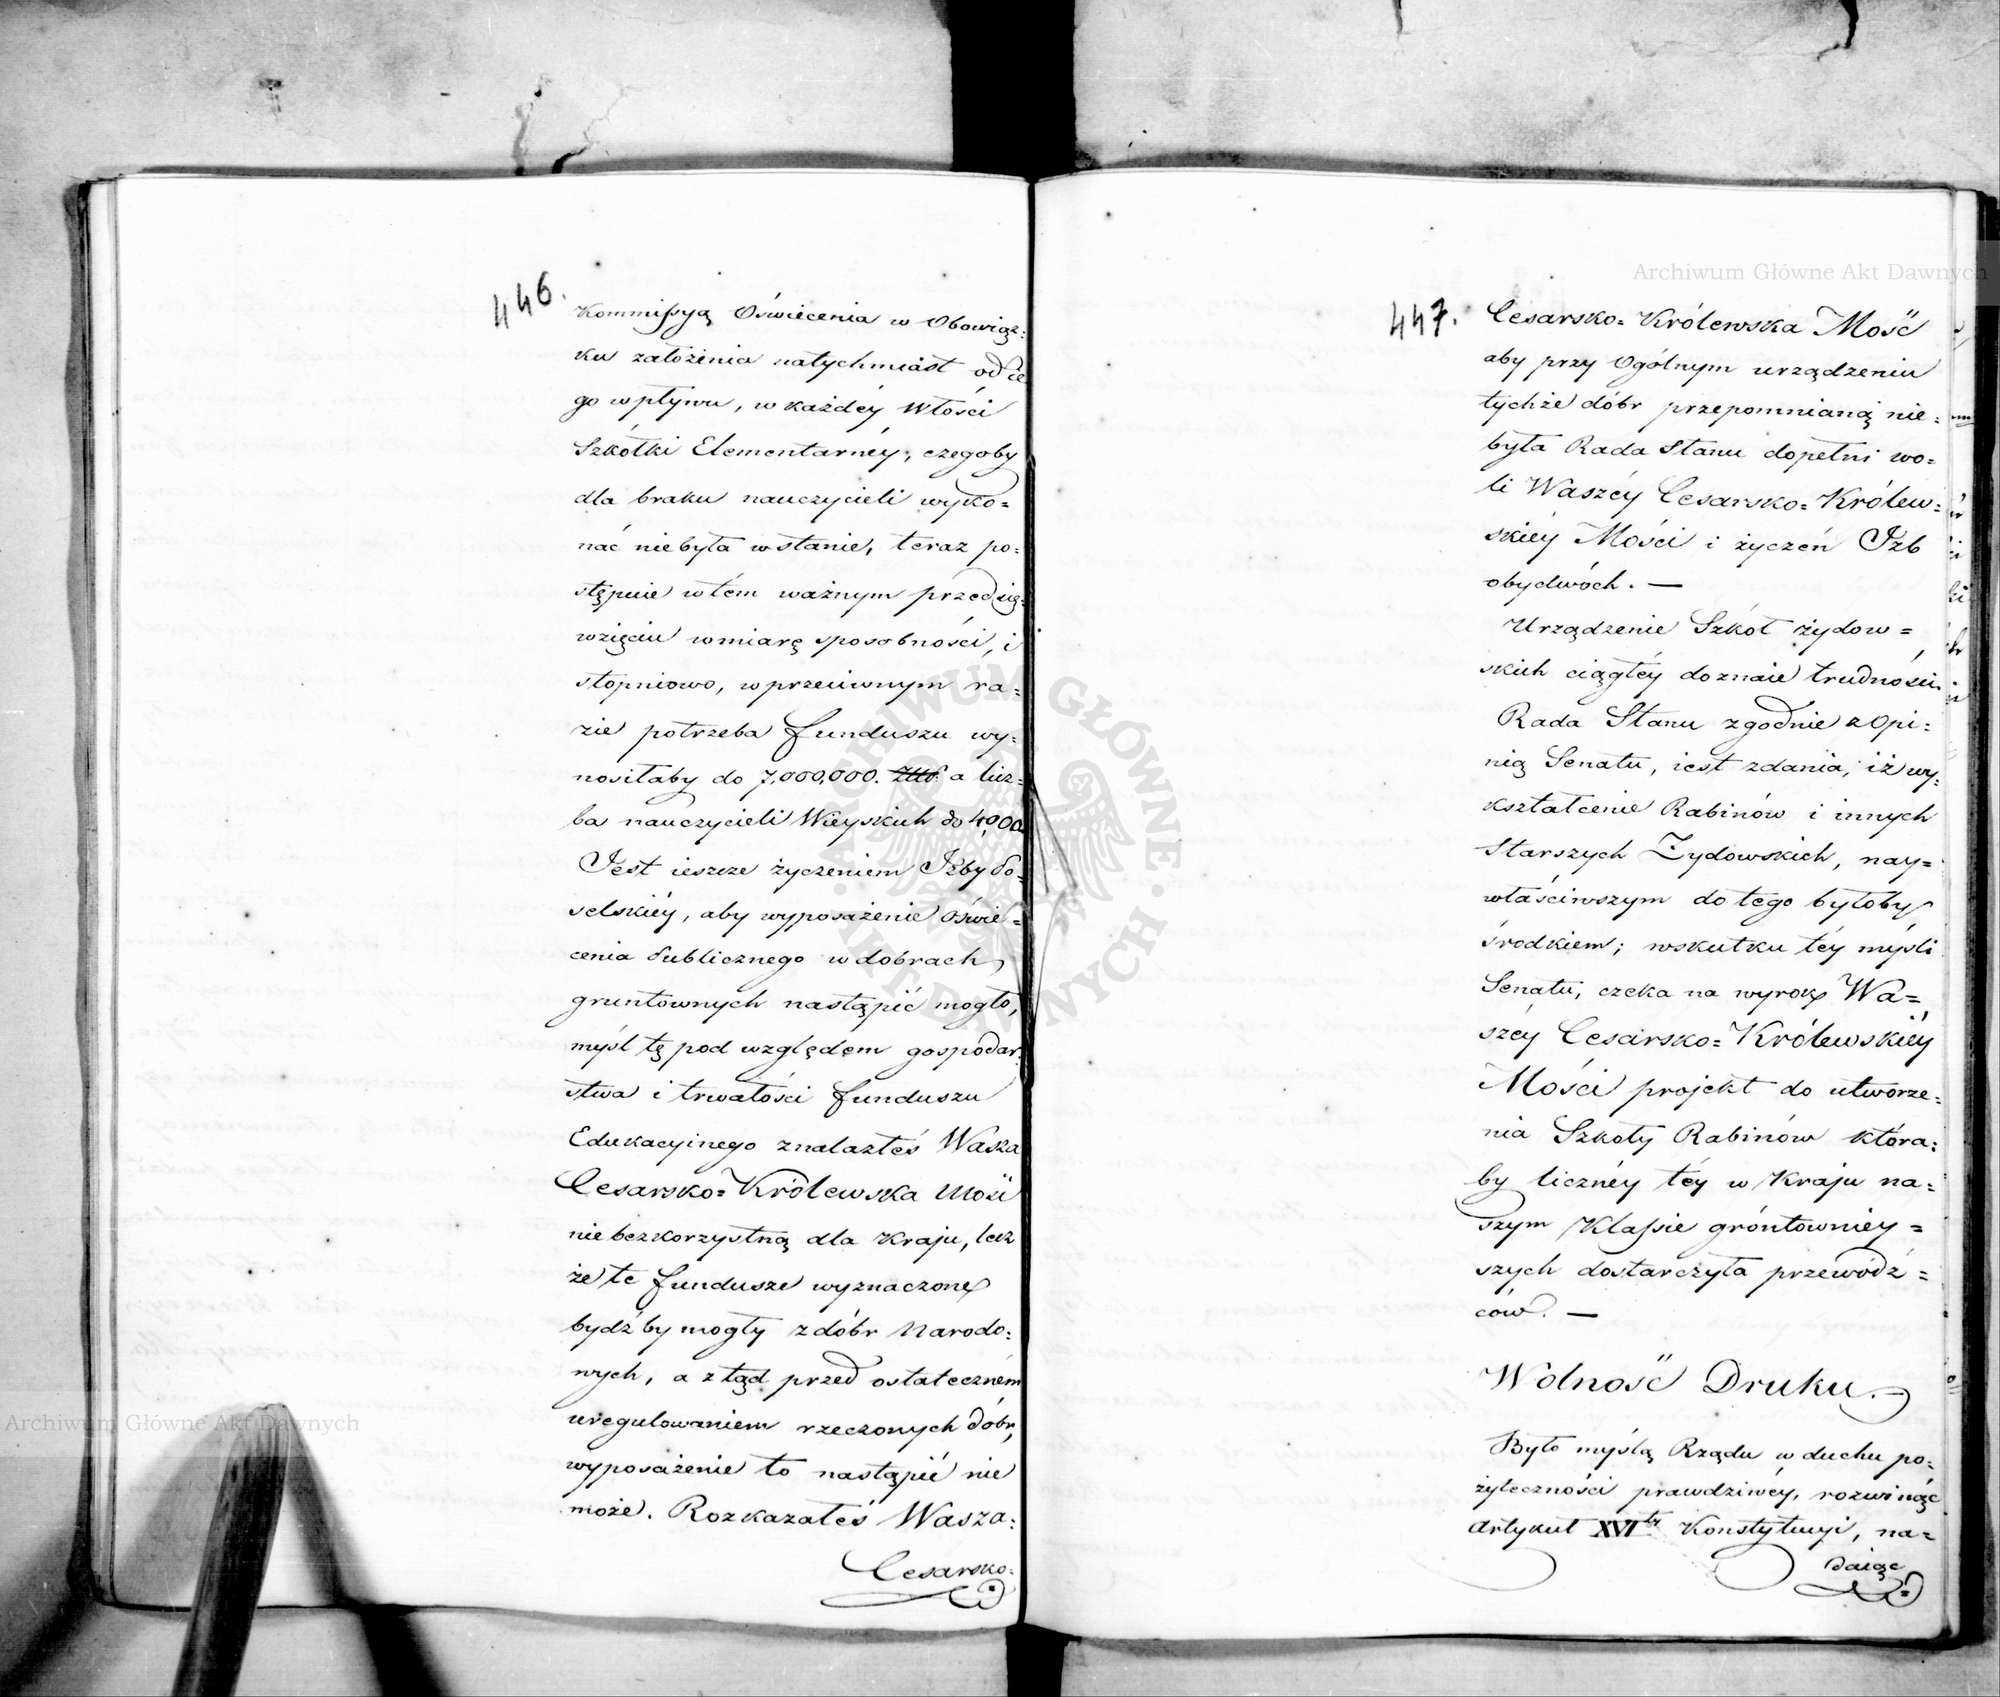 446.
Kommissyą Oświecenia w Obowiąz=
ku założenia natychmiast od ie
go wpływu, w każdéy Włości
Szkółki Elementarnéy, czegoby
dla braku nauczycieli wyko=
nać niebyła wstanie, teraz po=
stępuie wtém ważnym przedsię=
wzięciu wmiarę sposobności, i
stopniowo, wprzeciwnym ra=
zie potrzeba funduszu wy=
nosiłaby do 7,000,000. a licz=
ba nauczycieli Wieyskich do 4,000
Jest ieszcze życzeniem Izby Po=
selskiéy, aby wyposażenie Oświe=
cenia Publicznego w dobrach
gruntownych nastąpić mogło,
myśl tę pod względem gospodar=
stwa i trwałości funduszu
Edukacyinego znalazłeś Wasza
Cesarsko=Królewska Mość
niebezkorzystną dla Kraju, lecz
że te fundusze wyznaczone
bydź by mogły z dóbr Narodo=
wych, a ztąd przed ostateczném
uregulowaniem rzeczonych dóbr,
wyposażenie to nastąpić nie
może. Rozkazałeś Wasza=
Cesarsko=
447.
Cesarsko=Królewska Mość
aby przy Ogólnym urządzeniu
tychże dóbr przepomnianą nie=
była Rada Stanu dopełni wo=
li Waszéy Cesarsko=Królew=
skiéy Mości i życzeń Izb
obydwóch. —
Urządzenie Szkół żydow=
skich ciągłéy doznaie trudności.
Rada Stanu zgodnie z Opi=
nią Senatu, iest zdania, iż wy=
kształcenie Rabinów i innych
Starszych Żydowskich, nay=
właściwszym do tego byłoby
środkiem; wskutku téy myśli
Senatu, czeka na wyrok Wa=
széy Cesarsko=Królewskiéy
Mości projekt do utworze=
nia Szkoły Rabinów która=
by licznéy téy w Kraju na=
szym Klassie gróntowniey=
szych dostarczyła przewódz=
ców. —
Wolność Druku.
Było myślą Rządu w duchu po=
żyteczności prawdziwéy, rozwinąć
Artykuł XVIty Konstytucyi, na=
daiąc
Archiwum Główne Akt Dawnych
Archiwum Główne Akt Dawnych
ARCHIWUM GŁÓWNE AKT DAWNYCH